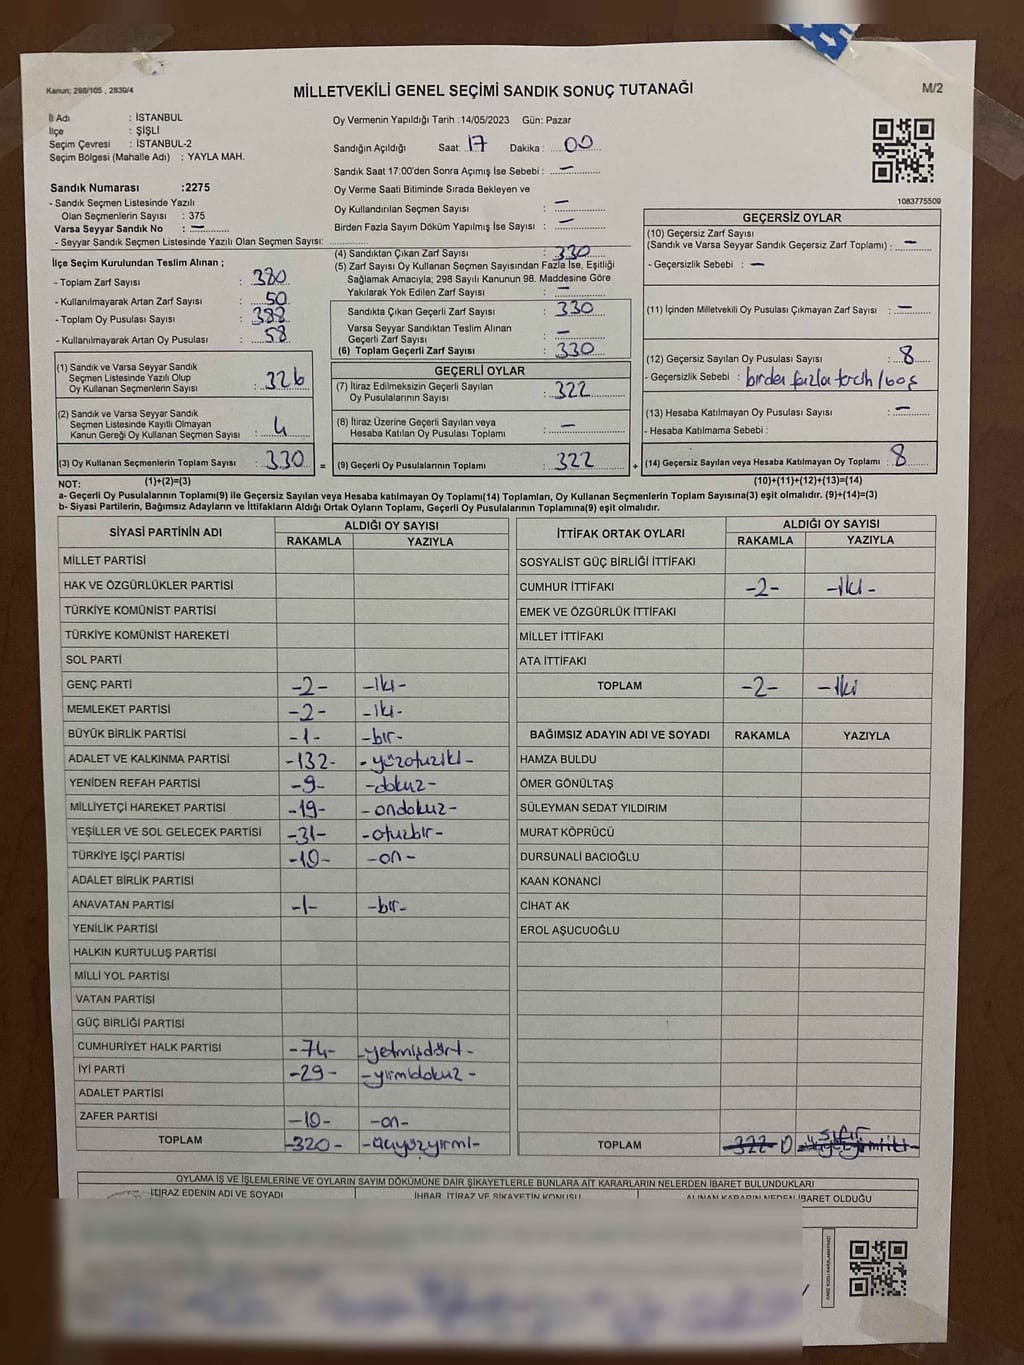 Kanun; 298/105 , 2839/4
MİLLETVEKİLİ GENEL SEÇİMİ SANDIK SONUÇ TUTANAĞI
M/2
İl Adı : İSTANBUL
İlçe : ŞİŞLİ
Seçim Çevresi : İSTANBUL-2
Seçim Bölgesi (Mahalle Adı) : YAYLA MAH.
Oy Vermenin Yapıldığı Tarih :14/05/2023 Gün: Pazar
Sandığın Açıldığı Saat: 17 Dakika : 00
Sandık Saat 17:00'den Sonra Açımış İse Sebebi : —
Oy Verme Saati Bitiminde Sırada Bekleyen ve
Oy Kullandırılan Seçmen Sayısı : —
Birden Fazla Sayım Döküm Yapılmış İse Sayısı : —
1083775509
Sandık Numarası :2275
- Sandık Seçmen Listesinde Yazılı
Olan Seçmenlerin Sayısı : 375
Varsa Seyyar Sandık No : —
- Seyyar Sandık Seçmen Listesinde Yazılı Olan Seçmen Sayısı:
İlçe Seçim Kurulundan Teslim Alınan ;
- Toplam Zarf Sayısı : 380
- Kullanılmayarak Artan Zarf Sayısı : 50
- Toplam Oy Pusulası Sayısı : 388
- Kullanılmayarak Artan Oy Pusulası : 58
(1) Sandık ve Varsa Seyyar Sandık
Seçmen Listesinde Yazılı Olup
Oy Kullanan Seçmenlerin Sayısı : 326
(2) Sandık ve Varsa Seyyar Sandık
Seçmen Listesinde Kayıtlı Olmayan
Kanun Gereği Oy Kullanan Seçmen Sayısı : 4
(3) Oy Kullanan Seçmenlerin Toplam Sayısı : 330 =
(4) Sandıktan Çıkan Zarf Sayısı : 330
(5) Zarf Sayısı Oy Kullanan Seçmen Sayısından Fazla İse, Eşitliği
Sağlamak Amacıyla; 298 Sayılı Kanunun 98. Maddesine Göre
Yakılarak Yok Edilen Zarf Sayısı : —
Sandıkta Çıkan Geçerli Zarf Sayısı : 330
Varsa Seyyar Sandıktan Teslim Alınan
Geçerli Zarf Sayısı : —
(6) Toplam Geçerli Zarf Sayısı : 330
GEÇERLİ OYLAR
(7) İtiraz Edilmeksizin Geçerli Sayılan
Oy Pusulalarının Sayısı : 322
(8) İtiraz Üzerine Geçerli Sayılan veya
Hesaba Katılan Oy Pusulası Toplamı : —
(9) Geçerli Oy Pusulalarının Toplamı : 322 +
GEÇERSİZ OYLAR
(10) Geçersiz Zarf Sayısı
(Sandık ve Varsa Seyyar Sandık Geçersiz Zarf Toplamı) : —
- Geçersizlik Sebebi : —
(11) İçinden Milletvekili Oy Pusulası Çıkmayan Zarf Sayısı : —
(12) Geçersiz Sayılan Oy Pusulası Sayısı : 8
- Geçersizlik Sebebi : birden fazla tercih / boş
(13) Hesaba Katılmayan Oy Pusulası Sayısı : —
- Hesaba Katılmama Sebebi :
(14) Geçersiz Sayılan veya Hesaba Katılmayan Oy Toplamı : 8
NOT: (1)+(2)=(3) (10)+(11)+(12)+(13)=(14)
a- Geçerli Oy Pusulalarının Toplamı(9) ile Geçersiz Sayılan veya Hesaba katılmayan Oy Toplamı(14) Toplamları, Oy Kullanan Seçmenlerin Toplam Sayısına(3) eşit olmalıdır. (9)+(14)=(3)
b- Siyasi Partilerin, Bağımsız Adayların ve İttifakların Aldığı Ortak Oyların Toplamı, Geçerli Oy Pusulalarının Toplamına(9) eşit olmalıdır.
SİYASİ PARTİNİN ADI ALDIĞI OY SAYISI
RAKAMLA YAZIYLA
MİLLET PARTİSİ
HAK VE ÖZGÜRLÜKLER PARTİSİ
TÜRKİYE KOMÜNİST PARTİSİ
TÜRKİYE KOMÜNİST HAREKETİ
SOL PARTİ
GENÇ PARTİ -2- -iki-
MEMLEKET PARTİSİ -2- -iki-
BÜYÜK BİRLİK PARTİSİ -1- -bir-
ADALET VE KALKINMA PARTİSİ -132- -yüzotuziki-
YENİDEN REFAH PARTİSİ -9- -dokuz-
MİLLİYETÇİ HAREKET PARTİSİ -19- -ondokuz-
YEŞİLLER VE SOL GELECEK PARTİSİ -31- -otuzbir-
TÜRKİYE İŞÇİ PARTİSİ -10- -on-
ADALET BİRLİK PARTİSİ
ANAVATAN PARTİSİ -1- -bir-
YENİLİK PARTİSİ
HALKIN KURTULUŞ PARTİSİ
MİLLİ YOL PARTİSİ
VATAN PARTİSİ
GÜÇ BİRLİĞİ PARTİSİ
CUMHURİYET HALK PARTİSİ -74- -yetmişdört-
İYİ PARTİ -29- -yirmidokuz-
ADALET PARTİSİ
ZAFER PARTİSİ -10- -on-
TOPLAM -320- -üçyüzyirmi-
İTTİFAK ORTAK OYLARI ALDIĞI OY SAYISI
RAKAMLA YAZIYLA
SOSYALİST GÜÇ BİRLİĞİ İTTİFAKI
CUMHUR İTTİFAKI -2- -iki-
EMEK VE ÖZGÜRLÜK İTTİFAKI
MİLLET İTTİFAKI
ATA İTTİFAKI
TOPLAM -2- -iki
BAĞIMSIZ ADAYIN ADI VE SOYADI RAKAMLA YAZIYLA
HAMZA BULDU
ÖMER GÖNÜLTAŞ
SÜLEYMAN SEDAT YILDIRIM
MURAT KÖPRÜCÜ
DURSUNALİ BACIOĞLU
KAAN KONANCİ
CİHAT AK
EROL AŞUCUOĞLU
TOPLAM -322- 0 sıfır
OYLAMA İŞ VE İŞLEMLERİNE VE OYLARIN SAYIM DÖKÜMÜNE DAİR ŞİKAYETLERLE BUNLARA AİT KARARLARIN NELERDEN İBARET BULUNDUKLARI
İTİRAZ EDENİN ADI VE SOYADI İHBAR, İTİRAZ VE ŞİKAYETİN KONUSU ALINAN KARARIN NEDEN İBARET OLDUĞU